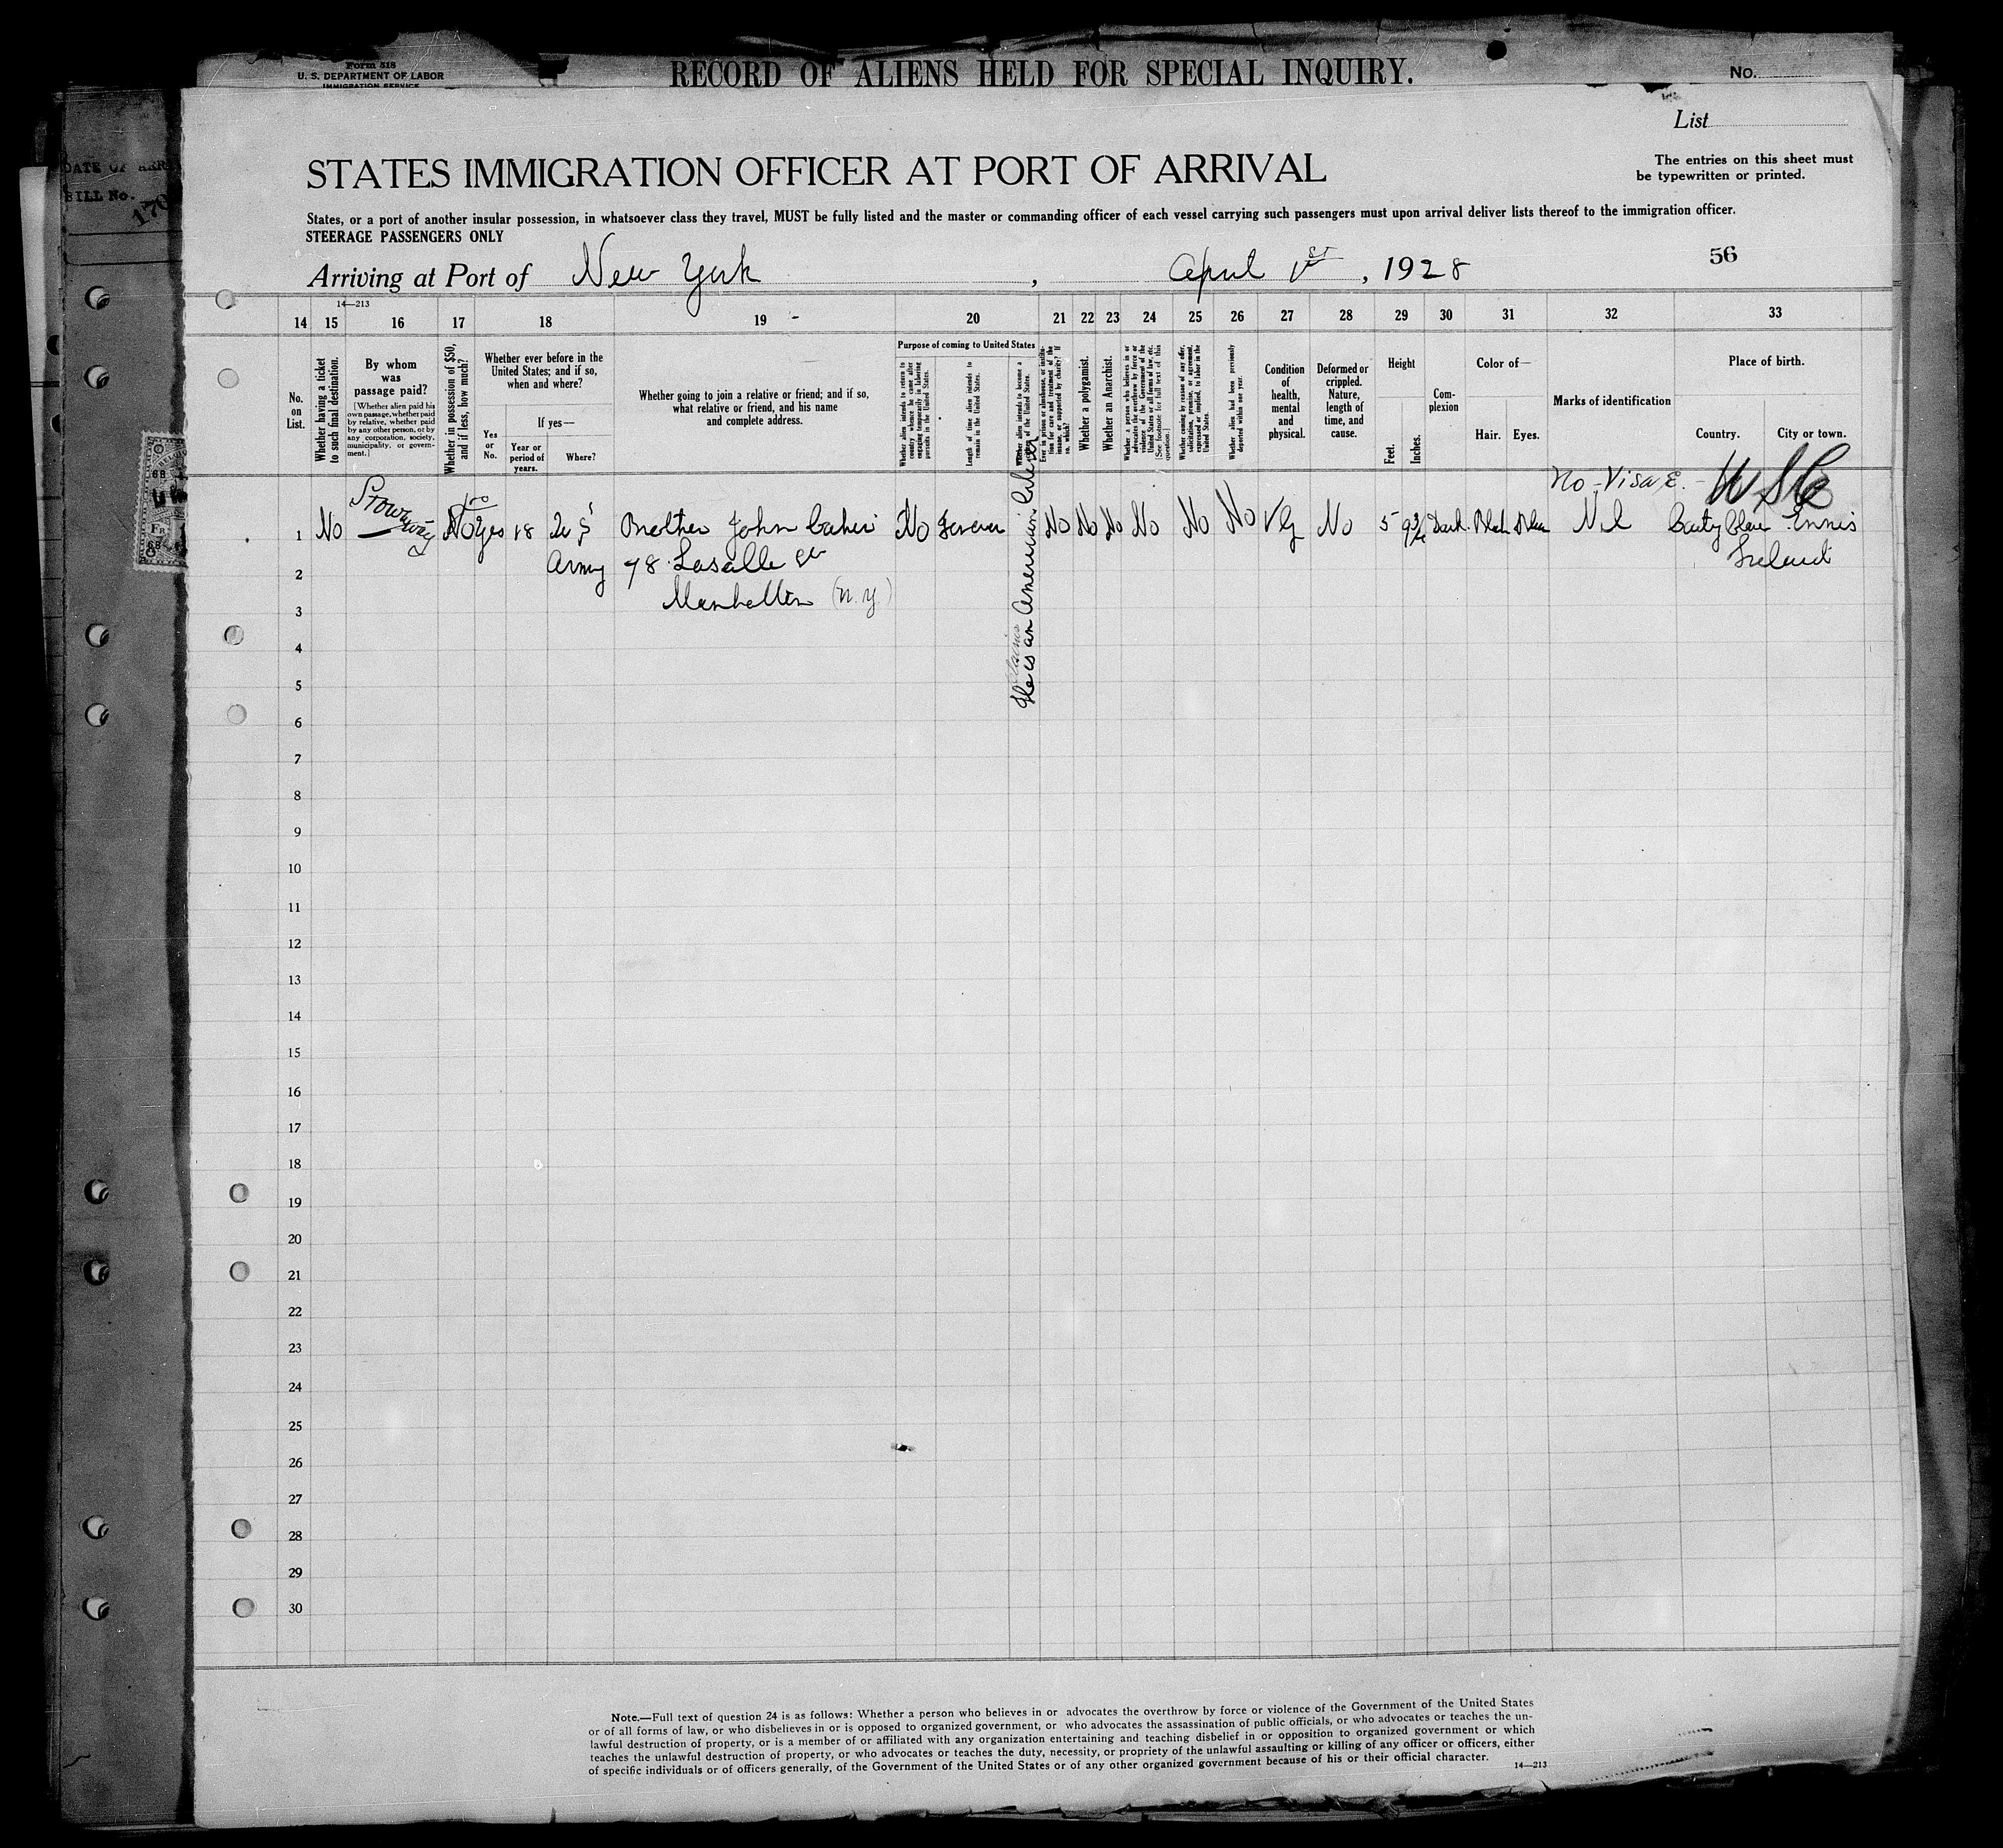 Form 518
U. S. DEPARTMENT OF LABOR
IMMIGRATION SERVICE
RECORD OF ALIENS HELD FOR SPECIAL INQUIRY.
No.
List
DATE OF ARR
BILL No.
170
STATES IMMIGRATION OFFICER AT PORT OF ARRIVAL
The entries on this sheet must
be typewritten or printed.
States, or a port of another insular possession, in whatsoever class they travel, MUST be fully listed and the master or commanding officer of each vessel carrying such passengers must upon arrival deliver lists thereof to the immigration officer.
STEERAGE PASSENGERS ONLY
56
Arriving at Port of New York, April 1st, 1928
14—213
14 15 16 17 18 19 20 21 22 23 24 25 26 27 28 29 30 31 32 33
No.
on
List.
Whether having a ticket
to such final destination.
By whom
was
passage paid?
[Whether alien paid his
own passage, whether paid
by relative, whether paid
by any other person, or by
any corporation, society,
municipality, or govern-
ment.]
Whether in possession of $50,
and if less, how much?
Whether ever before in the
United States; and if so,
when and where?
If yes—
Yes
or
No.
Year or
period of
years.
Where?
Whether going to join a relative or friend; and if so,
what relative or friend, and his name
and complete address.
Purpose of coming to United States
Whether alien intends to return to
country whence he came after
engaging temporarily in laboring
pursuits in the United States.
Length of time alien intends to
remain in the United States.
Whether alien intends to become a
citizen of the United States.
Ever in prison or almshouse, or institu-
tion for care and treatment of the
insane, or supported by charity? If
so, which?
Whether a polygamist.
Whether an Anarchist.
Whether a person who believes in or
advocates the overthrow by force or
violence of the Government of the
United States or all forms of law, etc.
[See footnote for full text of this
question.]
Whether coming by reason of any offer,
solicitation, promise, or agreement,
expressed or implied, to labor in the
United States.
Whether alien had been previously
deported within one year.
Condition
of
health,
mental
and
physical.
Deformed or
crippled.
Nature,
length of
time, and
cause.
Height
Feet.
Inches.
Com-
plexion
Color of—
Hair. Eyes.
Marks of identification
Place of birth.
Country. City or town.
No-Visa
Stowaway
1 No No yes 18 U S Brother John No No No No No No No VG No 5 Dark Nil Clare Ennis
2 Army 78 Lasalle St Ireland
3 Manhattan (N.Y.)
Claims
He is an American Citizen
4
5
6
7
8
9
10
11
12
13
14
15
16
17
18
19
20
21
22
23
24
25
26
27
28
29
30
Note.—Full text of question 24 is as follows: Whether a person who believes in or advocates the overthrow by force or violence of the Government of the United States
or of all forms of law, or who disbelieves in or is opposed to organized government, or who advocates the assassination of public officials, or who advocates or teaches the un-
lawful destruction of property, or is a member of or affiliated with any organization entertaining and teaching disbelief in or opposition to organized government or which
teaches the unlawful destruction of property, or who advocates or teaches the duty, necessity, or propriety of the unlawful assaulting or killing of any officer or officers, either
of specific individuals or of officers generally, of the Government of the United States or of any other organized government because of his or their official character.
14—213